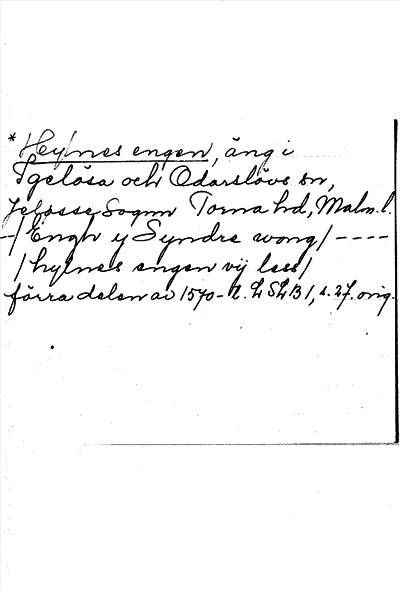 * Hylnes engen, äng i
Igelösa och Odarslövs sn,
Jeløsse Sogn Torna hd, Malm. l.
-/ Engh y Syndre wong/ ----
/ hylnes engen vij less/
förra delen av 1570-t. LSLB 1, s. 27. orig.